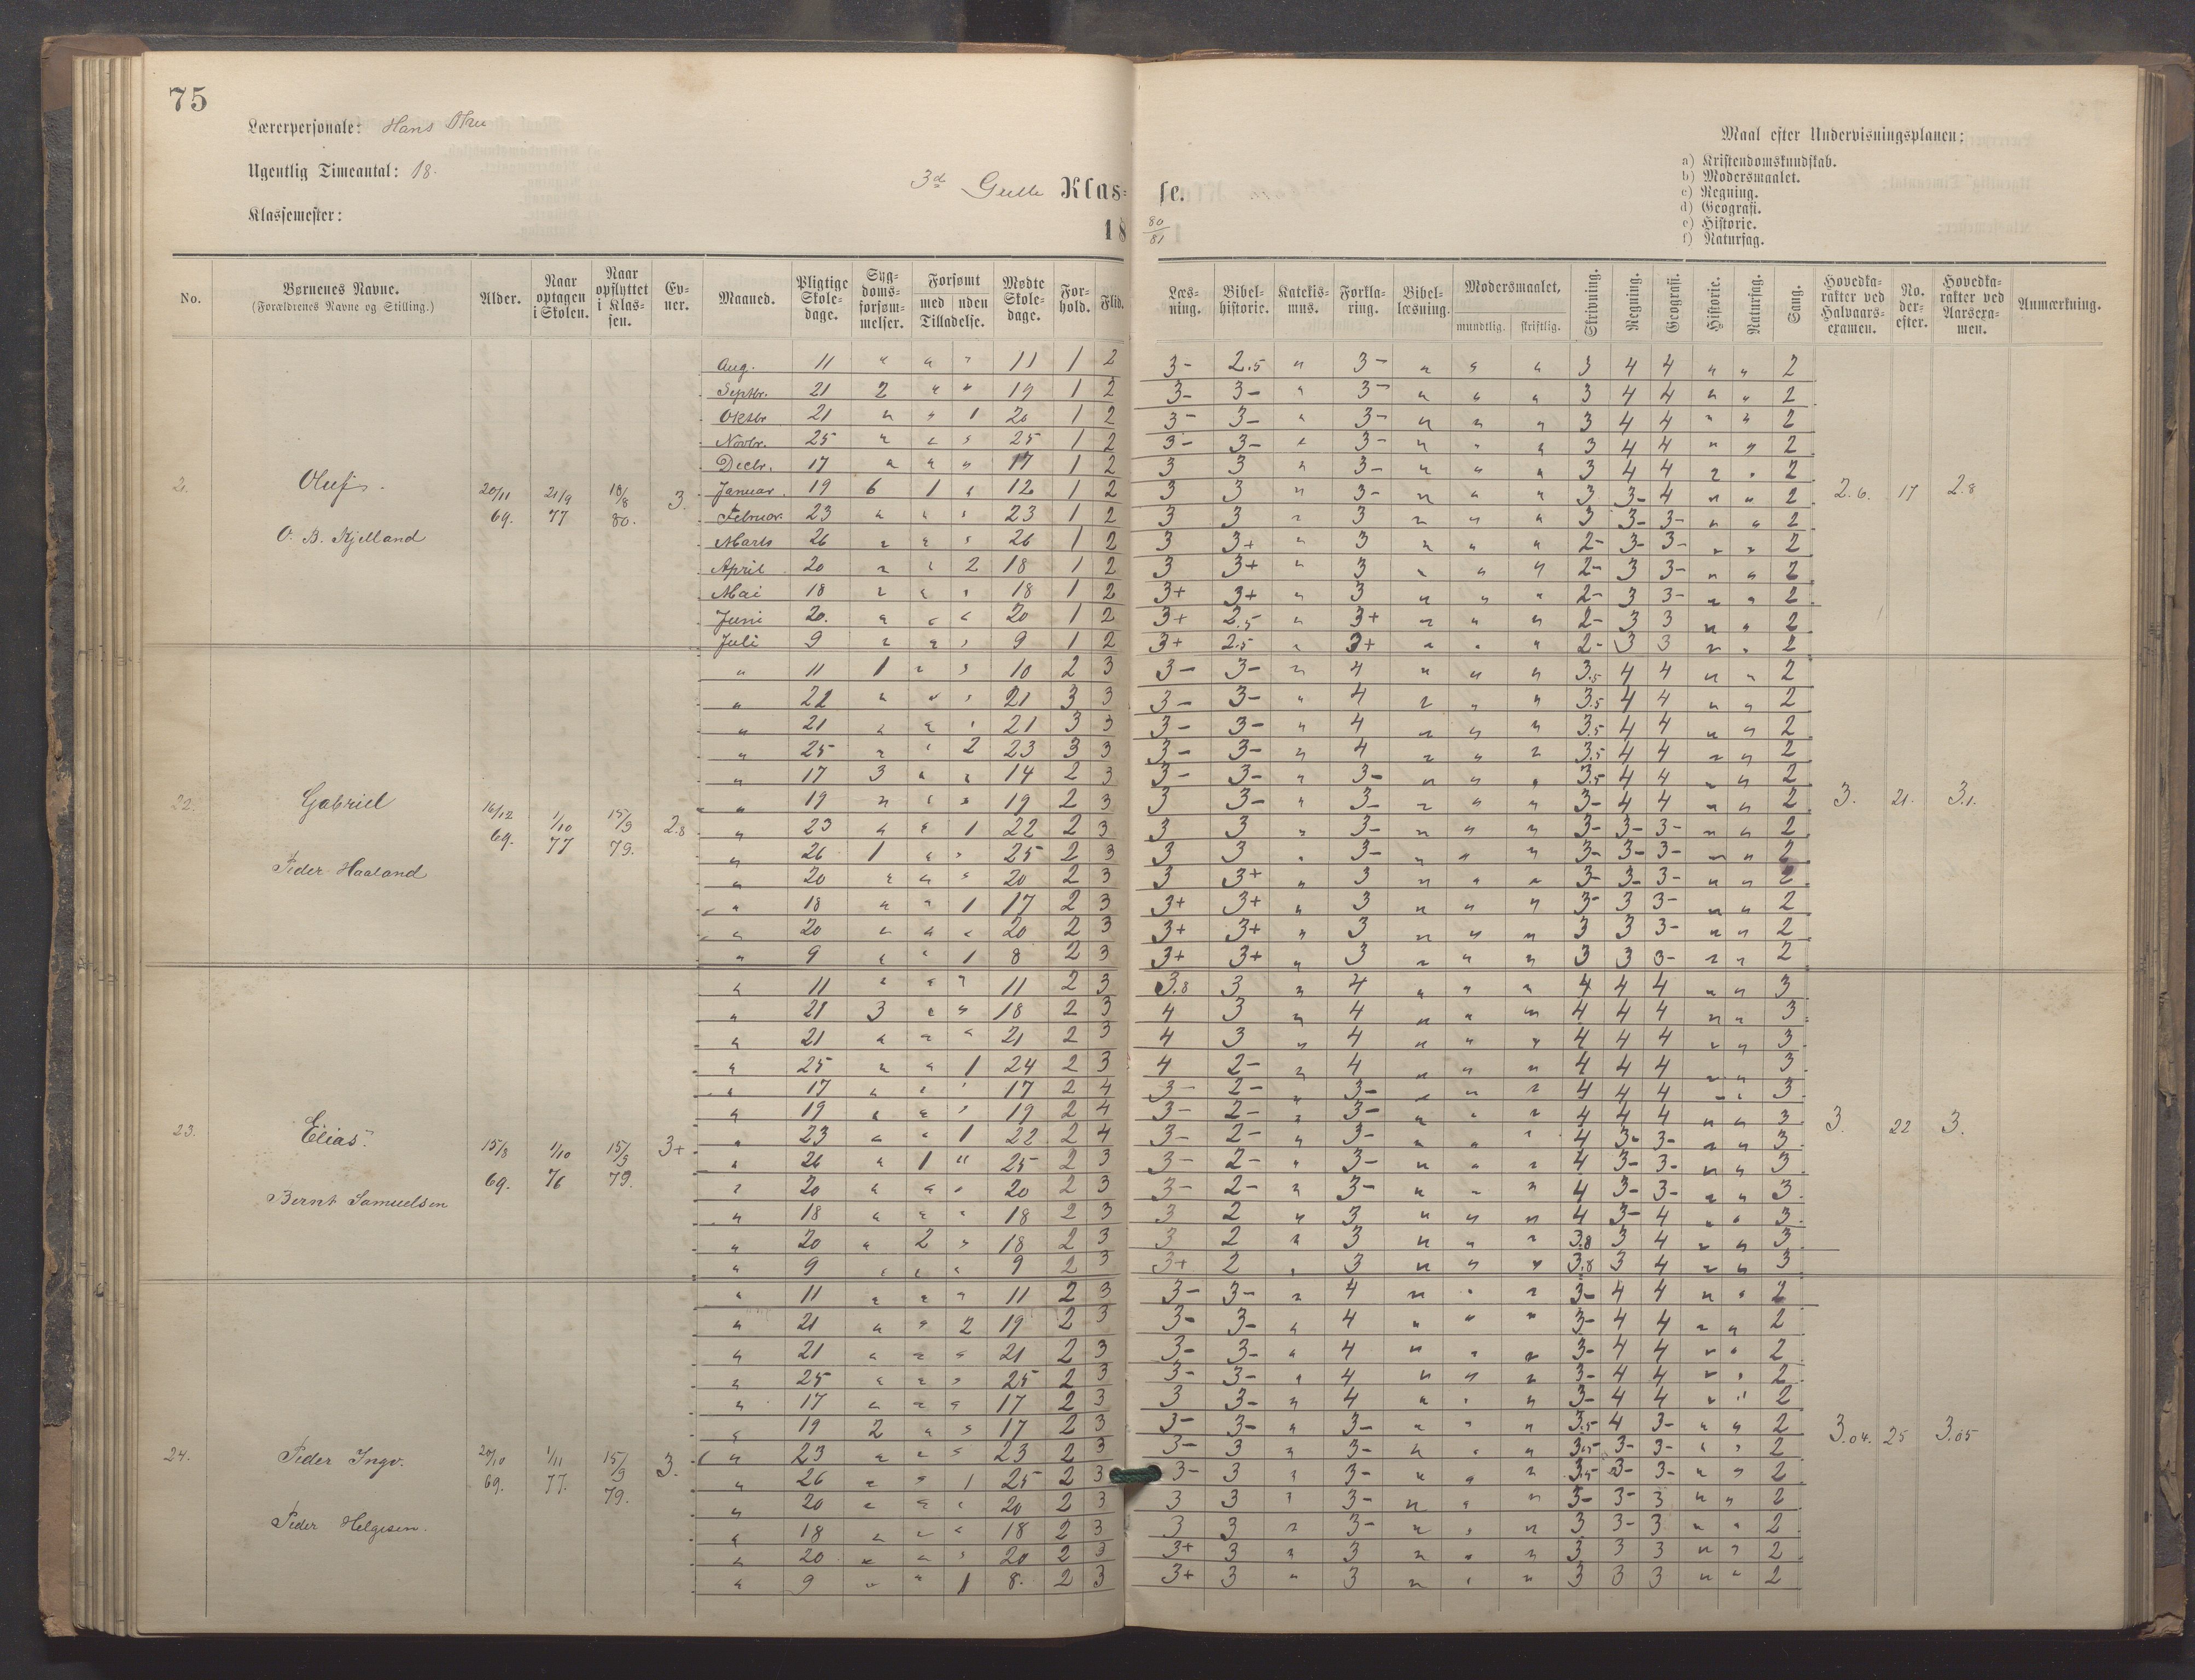 75
Lærerpersonale: Hans
Ugentlig Timeantal: 18.
Klassemester:
3d Gutte Klas-
se.
18 80/81
Maal efter Undervisningsplanen:
a) Kristendomskundskab.
b) Modersmaalet.
c) Regning.
d) Geografi.
e) Historie.
f) Naturfag.
No. Børnenes Navne. (Forældrenes Navne og Stilling.) Alder. Naar optagen i Skolen. Naar opflyttet i Klassen. Evner. Maaned. Pligtige Skoledage. Sygdomsforsømmelser. Forsømt med uden Tilladelse. Mødte Skoledage. Forhold. Flid. Læsning. Bibelhistorie. Katekismus. Forklaring. Bibellæsning. Modersmaalet, mundtlig. skriftlig. Skrivning. Regning. Geografi. Historie. Naturfag. Sang. Hovedkarakter ved Halvaarsexamen. No. derefter. Hovedkarakter ved Aarsexamen. Anmærkning.
21. Oluf O. B. Kjelland 20/11 69. 21/9 77 18/8 80. 3. 2.6. 17 2.8
Aug. 11 " " " 11 1 2 3- 2.5 " 3- " " " 3 4 4 " " 2
Septbr. 21 2 " " 19 1 2 3- 3- " 3- " " " 3 4 4 " " 2
Oktbr 21 " " 1 20 1 2 3- 3- " 3- " " " 3 4 4 " " 2
Novbr. 25 " " " 25 1 2 3- 3- " 3- " " " 3 4 4 " " 2
Decbr. 17 " " " 17 1 2 3 3 " 3- " " " 3 4 4 " " 2
Januar. 19 6 1 " 12 1 2 3 3 " 3- " " " 3 3- 4 " " 2
Februar. 23 " " " 23 1 2 3 3 " 3 " " " 3 3- 3- " " 2
Marts 26 " " " 26 1 2 3 3+ " 3 " " " 2- 3- 3- " " 2
April 20 " " 2 18 1 2 3 3+ " 3 " " " 2- 3 3- " " 2
Mai 18 " " " 18 1 2 3+ 3+ " 3 " " " 2- 3 3- " " 2
Juni 20. " " " 20 1 2 3+ 2.5 " 3+ " " " 2- 3 3 " " 2
Juli 9 " " " 9 1 2 3+ 2.5 " 3+ " " " 2- 3 3 " " 2
22. Gabriel Peder Haaland 16/12 69. 1/10 77 15/9 79. 2.8 3. 21. 3.1.
" 11 1 " " 10 2 3 3- 3- " 4 " " " 3.5 4 4 " " 2
" 22 " " " 21 3 3 3- 3- " 4 " " " 3.5 4 4 " " 2
" 21 " " " 21 3 3 3- 3- " 4 " " " 3.5 4 4 " " 2
" 25 " " 2 23 3 3 3- 3- " 4 " " " 3.5 4 4 " " 2
" 17 3 " " 14 2 3 3- 3- " 3- " " " 3.5 4 4 " " 2
" 19 " " " 19 2 3 3 3- " 3- " " " 3- 4 4 " " 2
" 23 " " 1 22 2 3 3 3 " 3- " " " 3- 3- 3- " " 2
" 26 1 " " 25 2 3 3 3 " 3- " " " 3- 3- 3- " " 2
" 20 " " " 20 2 3 3 3+ " 3 " " " 3- 3- 3- " " 2
" 18 " " 1 17 2 3 3+ 3+ " 3 " " " 3- 3 3- " " 2
" 20 " " " 20 2 3 3+ 3+ " 3 " " " 3 3 3- " " 2
" 9 " " 1 8 2 3 3+ 3+ " 3 " " " 3 3 3- " " 2
23. Elias. Bernt Samuelsen 15/8 69. 1/10 76 15/9 79. 3+ 3. 22 3.
" 11 " " " 11 2 3 3.8 3 " 4 " " " 4 4 4 " " 3
" 21 3 " " 18 2 3 4 3 " 4 " " " 4 4 4 " " 3
" 21 " " " 21 2 3 4 3 " 4 " " " 4 4 4 " " 3
" 25 " " 1 24 2 3 4 2- " 4 " " " 4 4 4 " " 3
" 17 " " " 17 2 4 3- 2- " 3- " " " 4 4 4 " " 3
" 19 " " " 19 2 4 3- 2- " 3- " " " 4 4 4 " " 3
" 23 " " 1 22 2 4 3- 2- " 3- " " " 4 3- 3- " " 3
" 26 " 1 " 25 2 3 3- 2- " 3- " " " 4 3- 3- " " 3
" 20 " " " 20 2 3 3- 2- " 3- " " " 4 3- 3- " " 3
" 18 " " " 18 2 3 3 2 " 3 " " " 4 3- 4 " " 3
" 20 " 2 " 18 2 3 3 2 " 3 " " " 3.8 3 4 " " 3
" 9 " " " 9 2 3 3+ 2 " 3 " " " 3.8 3 4 " " 3
24. Peder Ingv. Peder Helgesen. 20/10 69. 1/11 77. 15/9 79. 3. 3.04. 25 3.05
" 11 " " " 11 2 3 3- 3- " 4 " " " 3- 4 4 " " 2
" 21 " " 2 19 2 3 3- 3- " 4 " " " 3- 4 4 " " 2
" 21 " " " 21 2 3 3- 3- " 4 " " " 3- 4 4 " " 2
" 25 " " " 25 2 3 3- 3- " 4 " " " 3- 4 4 " " 2
" 17 " " " 17 2 3 3 3- " 4 " " " 3- 4 4 " " 2
" 19 2 " " 17 2 3 3- 3- " 3- " " " 3.5 4 3- " " 2
" 23 " " " 23 2 3 3- 3 " 3- " " " 3.5 3- 3- " " 2
" 26 " " 1 25 2 3 3- 3 " 3- " " " 3.5 3- 3- " " 2
" 20 " " " 20 2 3 3 3 " 3- " " " 3- 3- 3 " " 2
" 18 " " " 18 2 3 3 3 " 3- " " " 3 3- 3 " " 2
" 20 " " " 20 2 3 3+ 3 " 3 " " " 3 3 3 " " 2
" 9 " " 1 8. 2 3 3+ 3 " 3 " " " 3 3 3 " " 2